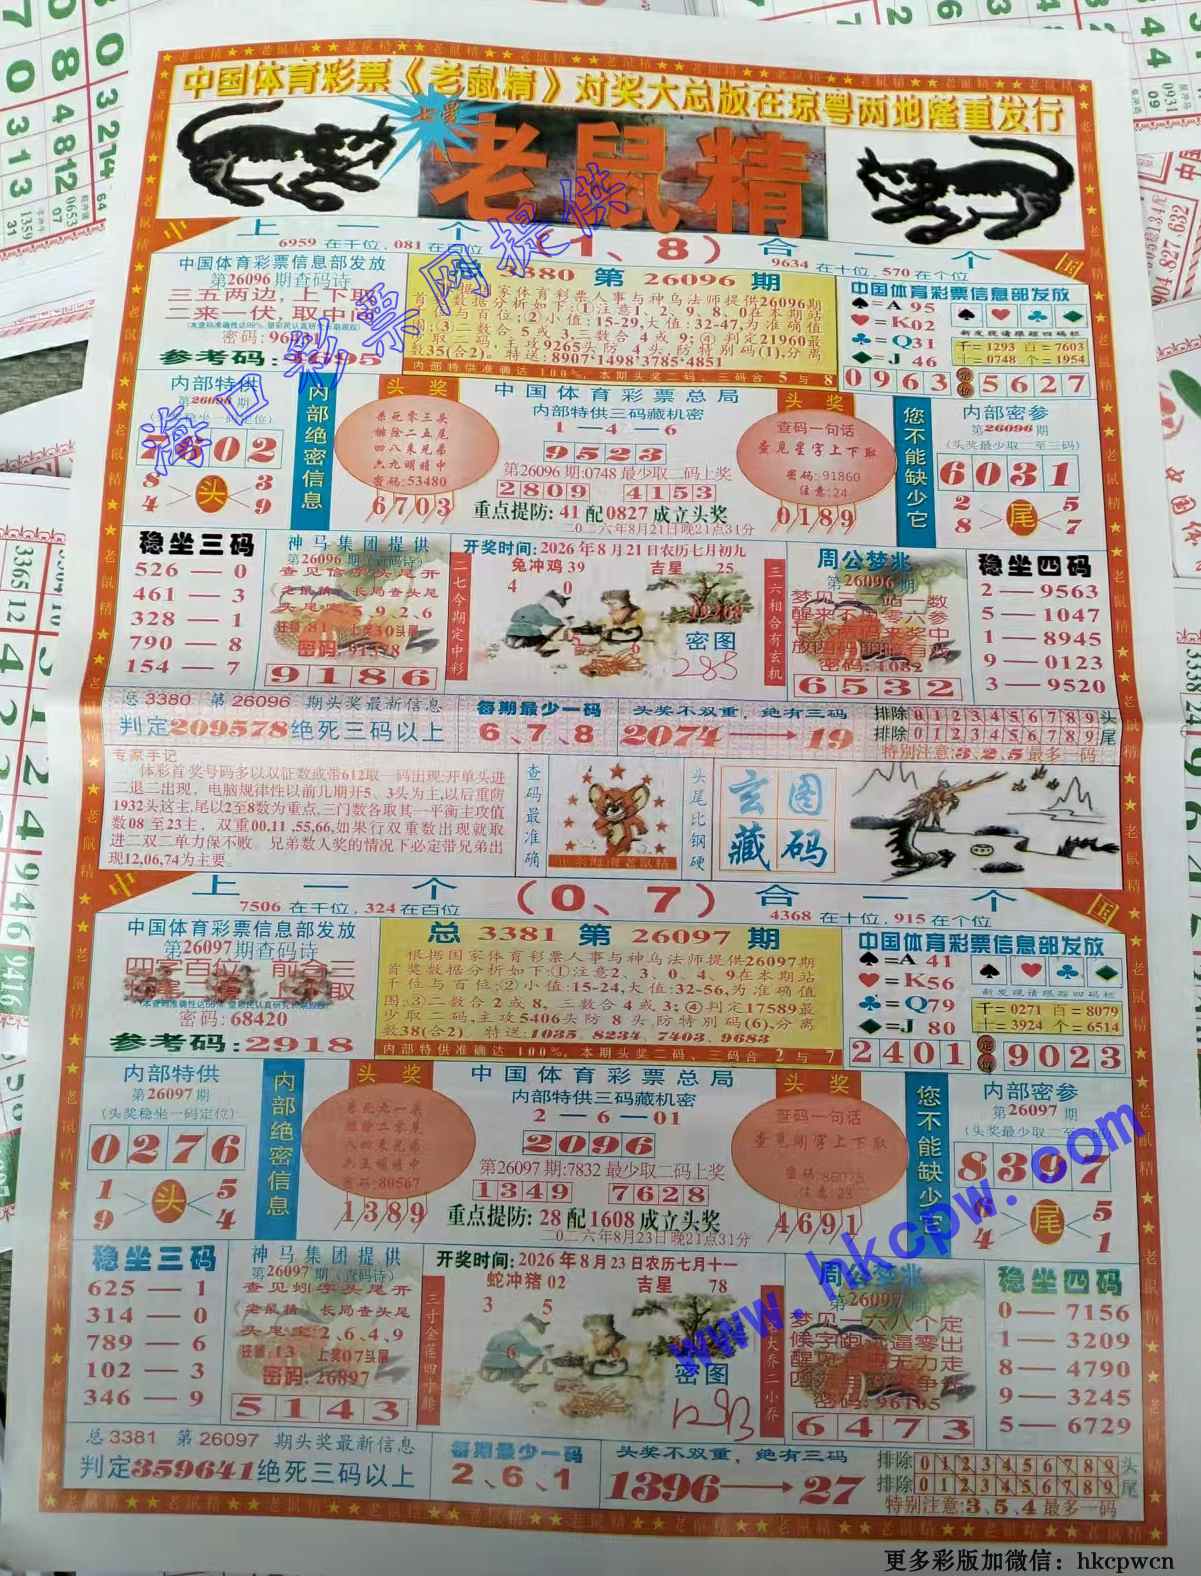 中国体育彩票《老鼠精》对奖大总版在琼粤两地隆重发行
七星
老鼠精
上一个 (1、8) 合一个
6959 在千位, 081 在百位
9634 在十位, 570 在个位
中国
中国体育彩票信息部发放
第26096期查码诗
三五两边,上下取
三来一伏,取中间
参考码:
总 3380 第 26096 期
根据国家体育彩票人事与神乌法师提供26096期
首奖数据分析如下:①注意1、2、9、8、0在本期站
千位与百位;②小值:15-29,大值:32-47,为准确值
图;③二数合 5 或 3,三数合 4 或 9;④判定21960最
少取二码,主攻9265头防 4 头,防特别码(1),分离
数35(合2)。特送:8907*1498*3785*4851
内部特供准确达 100%。本期头奖二码、三码合 5 与 8
中国体育彩票信息部发放
♠=A 95
♥=K02
♣=Q31
♦=J 46
新发现请跟踪四码栏
千=1293 百=7603
十=0748 个=1954
0963 定位 5627
内部特供
第26096期
7302
8 4 头 3 9
内部绝密信息
头奖
杀死零三头
排除二五尾
四八来兄弟
六九明暗中
密码:53480
6703
中国体育彩票总局
内部特供三码藏机密
1-4-6
9523
第26096期:0748最少取二码上奖
2809 4153
重点提防: 41 配 0827 成立头奖
二0二六年8月21日晚21点31分
头奖
查码一句话
查见星字上下取
密码:91860
注意:24
0189
您不能缺少它
内部密参
第26096期
(头奖最少取二至三码)
6031
2 8 尾 5 7
稳坐三码
526 — 0
461 — 3
328 — 1
790 — 8
154 — 7
神马集团提供
第26096期(查码诗)
查见信字头尾开
老鼠精、长局查头尾
头尾定:5、9、2、6
狂规 81 上奖30头尾
密码: 91378
9186
二七今期定中彩
开奖时间: 2026年8月21日农历七月初九
兔冲鸡 39 吉星 25
4 0
密图
285
三六相合有玄机
周公梦兆
第26096期
密码: 1082
6532
稳坐四码
2 — 9563
5 — 1047
1 — 8945
9 — 0123
3 — 9520
总 3380 第 26096 期头奖最新信息
判定209578绝死三码以上
每期最少一码
6、7、8
头奖不双重,绝有三码
2074 → 19
排除 0 1 2 3 4 5 6 7 8 9 头
排除 0 1 2 3 4 5 6 7 8 9 尾
特别注意:3、2、5最多一码
专家手记
体彩首奖号码多以双征数或带612取一码出现;开单头进
二退二出现,电脑规律性以前几期开5、3头为主,以后重防
1932头这主,尾以2至8数为重点,三门数各取其一平衡主攻值
数08 至23主,双重00,11 ,55,66,如果行双重数出现就取
进二双二单力保不败。兄弟数入奖的情况下必定带兄弟出
现12,06,74为主要。
查码最准确
头尾比钢硬
玄图藏码
上一个 (0、7) 合一个
7506 在千位, 324 在百位
4368 在十位, 915 在个位
中国
中国体育彩票信息部发放
第26097期查码诗
密码: 68420
参考码:2918
总 3381 第 26097 期
根据国家体育彩票人事与神乌法师提供26097期
首奖数据分析如下:①注意2、3、0、4、9在本期站
千位与百位;②小值:15-24,大值:32-56,为准确值
图;③二数合 2 或 8,三数合 4 或 3;④判定17589最
少取二码,主攻5406头防 8 头,防特别码(6),分离
数38(合2)。特送:1035、8234、7403、9683
内部特供准确达 100%。本期头奖二码、三码合 2 与 7
中国体育彩票信息部发放
♠=A 41
♥=K56
♣=Q79
♦=J 80
新发现请跟踪四码栏
千=0271 百=8079
十=3924 个=6514
2401 定位 9023
内部特供
第26097期
(头奖稳坐一码定位)
0276
1 9 头 5 4
内部绝密信息
头奖
密码: 80567
1389
中国体育彩票总局
内部特供三码藏机密
2-6-01
2096
第26097期:7832 最少取二码上奖
1349 7628
重点提防: 28 配 1608 成立头奖
二0二六年8月23日晚21点31分
头奖
查码一句话
注意: 23
4691
您不能缺少它
内部密参
第26097期
(头奖最少取二至三码)
8397
6 4 尾 5 1
稳坐三码
625 — 1
314 — 0
789 — 6
102 — 3
346 — 9
神马集团提供
第26097期(查码诗)
老鼠精、长局查头尾
头尾定:2、6、4、9
狂规 13 上奖07头尾
密码: 26897
5143
开奖时间: 2026年8月23日农历七月十一
蛇冲猪 02 吉星 78
3 5
密图
周公梦兆
第26097期
梦见一六八个定
密码: 96105
6473
稳坐四码
0 — 7156
1 — 3209
8 — 4790
9 — 3245
5 — 6729
总 3381 第 26097 期头奖最新信息
判定359641绝死三码以上
每期最少一码
2、6、1
头奖不双重,绝有三码
1396 → 27
排除 0 1 2 3 4 5 6 7 8 9 头
排除 0 1 2 3 4 5 6 7 8 9 尾
特别注意:3、5、4最多一码
海口彩票网提供
www.hkcpw.com
更多彩版加微信: hkcpwcn